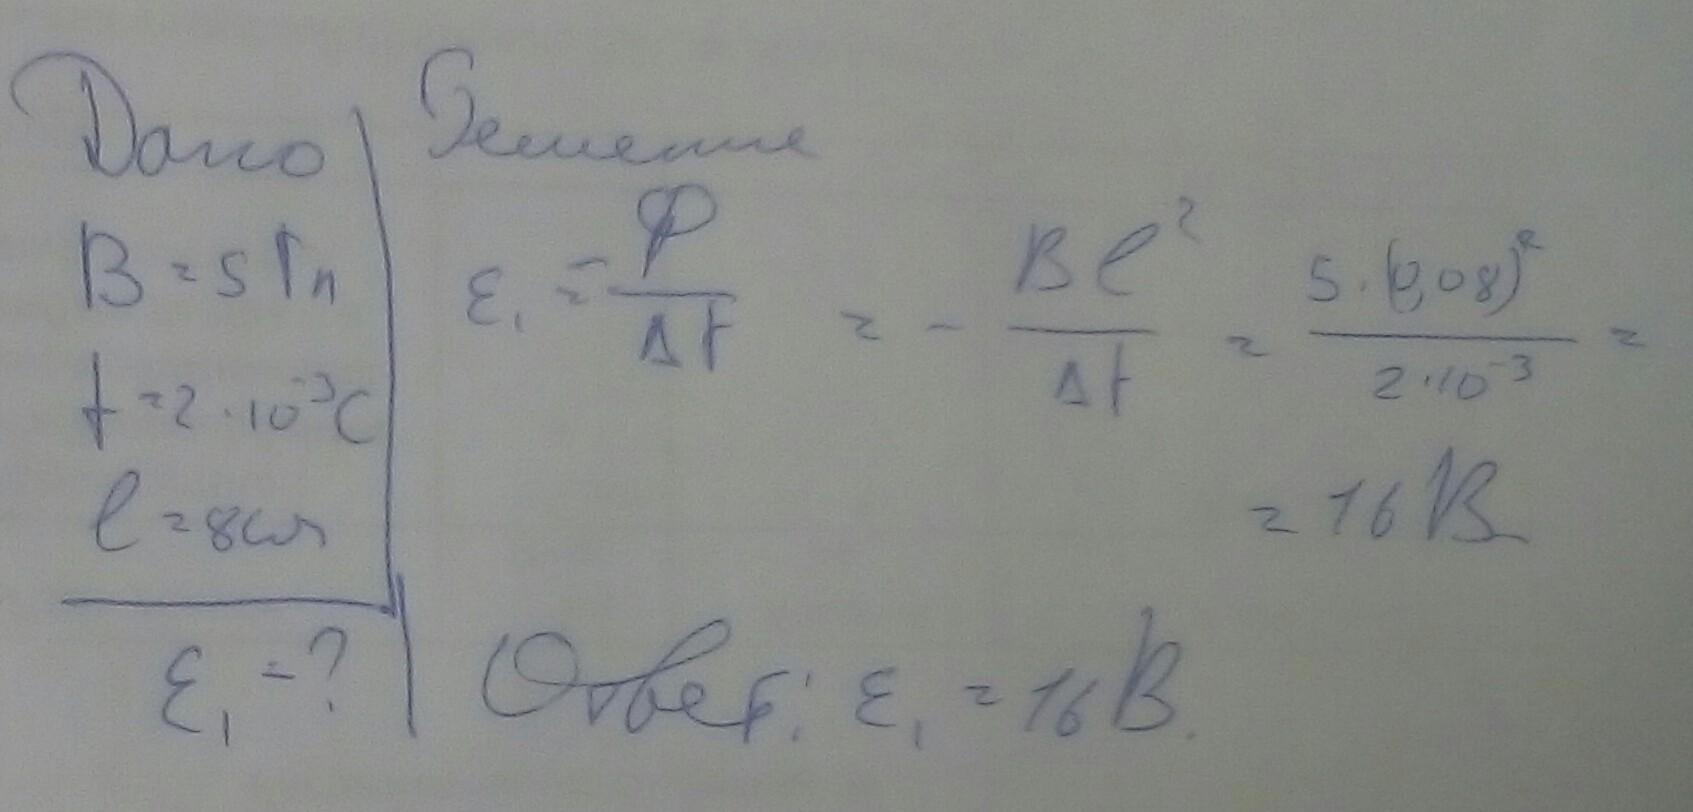 Дано
B = 5 Тл
t = 2·10⁻³ С
l = 8 см
ε₁ - ?
Решение
ε₁ = -Φ/Δt = - Bl²/Δt = 5·(0,08)²/2·10⁻³ =
= 16 В
Ответ: ε₁ = 16 В.